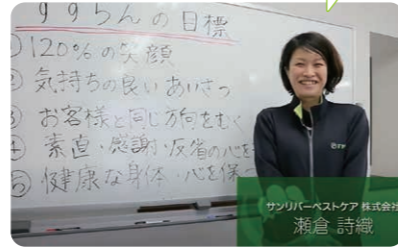 すずらんの目標
①120%の笑顔
② 気持ちの良いあいさつ
③ お客様と同じ方向をむく
④ 素直・感謝・反省の心を
⑤ 健康な身体・心を保つ
サンリバーベストケア 株式会社
瀬倉 詩織